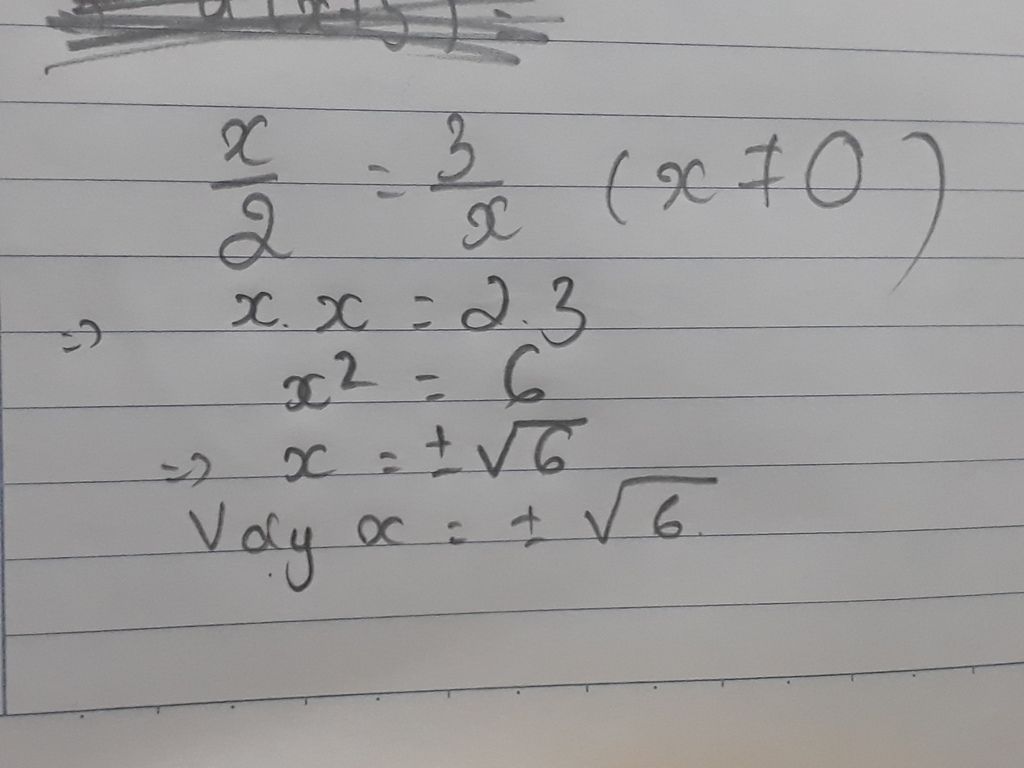 x/2 = 3/x (x ≠ 0)
=> x. x = 2.3
x² = 6
=> x = ±√6
Vậy x = ± √6.